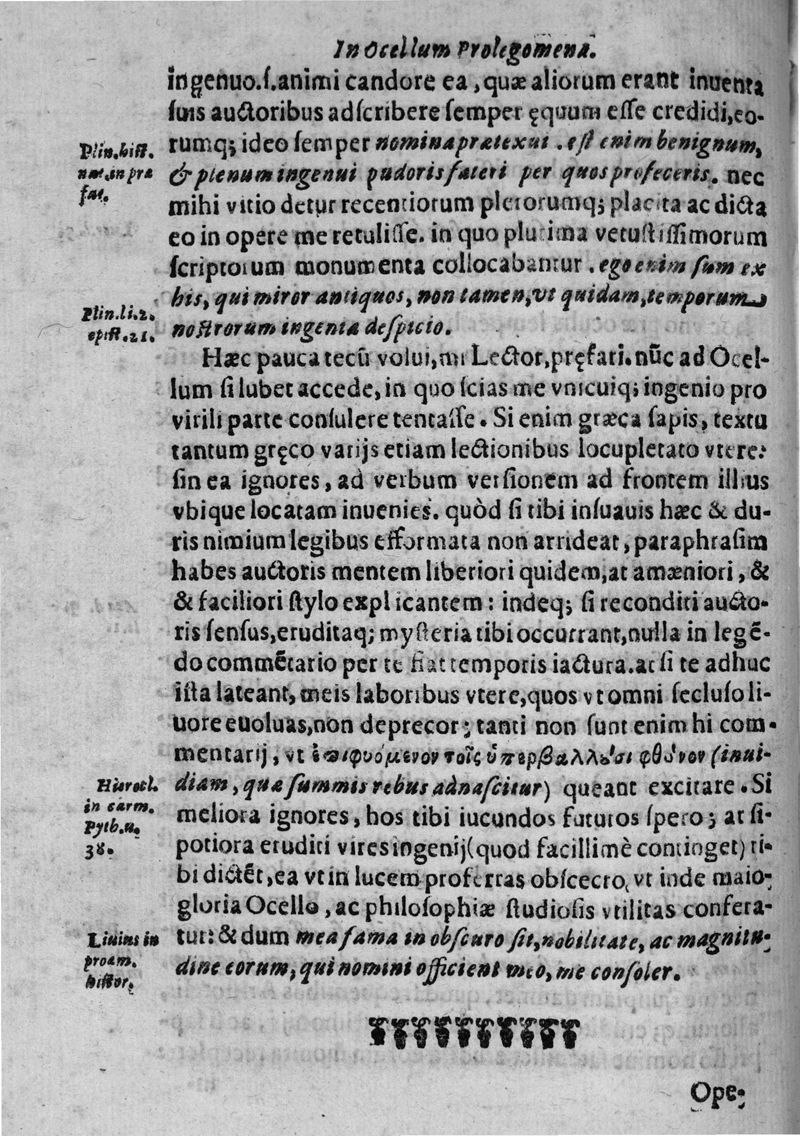 In Ocellum Prolegomena.
ingenuo.ſ.animi candore ea, quæ aliorum erant inuenta
ſuis auctoribus adſcribere ſemper ęquum eſſe credidi, eo-
rumq; ideo ſemper nomina prætexui. eſt enim benignum,
Plin. hiſt.
nat. in præ
fat.
& plenum ingenui pudoris fateri per quos profeceris. nec
mihi vitio detur recentiorum plerorumq; placita ac dicta
eo in opere me retuliſſe. in quo plurima vetuſtiſſimorum
ſcriptorum monumenta collocabantur. ego enim ſum ex
his, qui miror antiquos, non tamen, vt quidam, temporum
Plin. li. 2.
epiſt. 21.
noſtrorum ingenia deſpicio.
Hæc pauca tecū volui, mi Lector, pręfari. nūc ad Ocel-
lum ſi lubet accede, in quo ſcias me vnicuiq; ingenio pro
virili parte conſulere tentaſſe. Si enim græca ſapis, textu
tantum gręco varijs etiam lectionibus locupletato vtere:
ſin ea ignores, ad verbum verſionem ad frontem illius
vbique locatam inuenies. quòd ſi tibi inſuauis hæc & du-
ris nimium legibus efformata non arrideat, paraphraſim
habes auctoris mentem liberiori quidem, at amæniori, &
& faciliori ſtylo explicantem: indeq; ſi reconditi aucto-
ris ſenſus, eruditaq; myſteria tibi occurrant, nulla in legē-
do commētario per te fiat temporis iactura. at ſi te adhuc
iſta lateant, meis laboribus vtere, quos vt omni ſecluſo li-
uore euoluas, non deprecor; tanti non ſunt enim hi com-
mentarij, vt ἐπιφυόμενον τοῖς ὑπερβάλλουσι φθόνον (inui-
Hierocl.
in carm.
Pyth. n.
38.
diam, quæ ſummis rebus adnaſcitur) queant excitare. Si
meliora ignores, hos tibi iucundos futuros ſpero; at ſi
potiora eruditi vires ingenij (quod facillimè continget) ti-
bi dictēt, ea vt in lucem proferras obſcecro, vt inde maior
gloria Ocello, ac philoſophiæ ſtudioſis vtilitas confera-
Liuius in
proæm.
hiſtor.
tur: & dum mea fama in obſcuro ſit, nobilitate, ac magnitu-
dine eorum, qui nomini officient meo, me conſoler.
Ope-